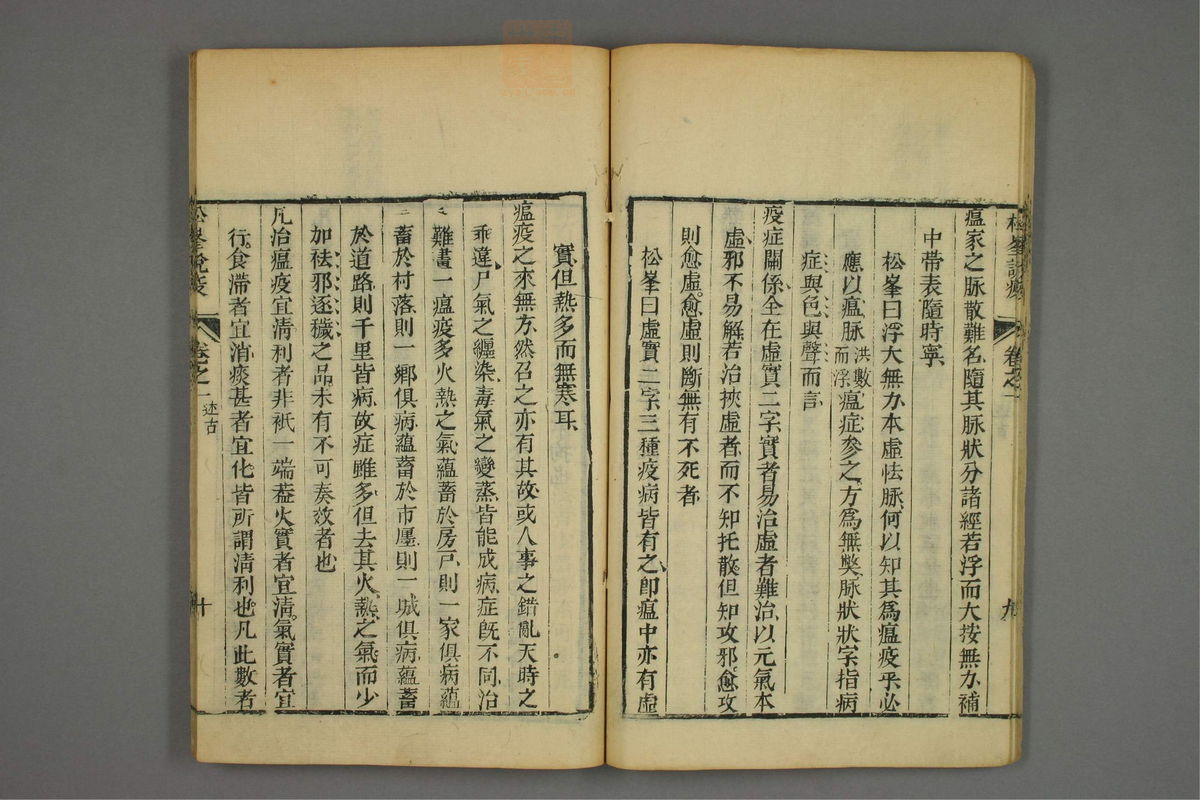 松峯說疫 卷之一 九
瘟家之脉散難名隨其脉狀分諸經若浮而大按無力補
中帶表隨時寧
松峯曰浮大無力本虛怯脉何以知其爲瘟疫乎必
應以瘟脉洪數而浮瘟症參之方爲無獘脉狀狀字指病
症與色與聲而言
疫症關係全在虛實二字實者易治虛者難治以元氣本
虛邪不易解若治挾虛者而不知托散但知攻邪愈攻
則愈虛愈虛則斷無有不死者
松峯曰虛實二字三種疫病皆有之卽瘟中亦有虛
實但熱多而無寒耳
瘟疫之來無方然召之亦有其故或人事之錯亂天時之
乖違尸氣之纒染毒氣之變蒸皆能成病症旣不同治
難畫一瘟疫多火熱之氣蘊蓄於房戸則一家俱病蘊
蓄於村落則一鄉俱病蘊蓄於市廛則一城俱病蘊蓄
於道路則千里皆病故症雖多但去其火熱之氣而少
加祛邪逐穢之品未有不可奏效者也
凡治瘟疫宜清利者非祇一端葢火實者宜清氣實者宜
行食滯者宜消痰甚者宜化皆所謂清利也凡此數者
松峯說疫 卷之一 述古 十